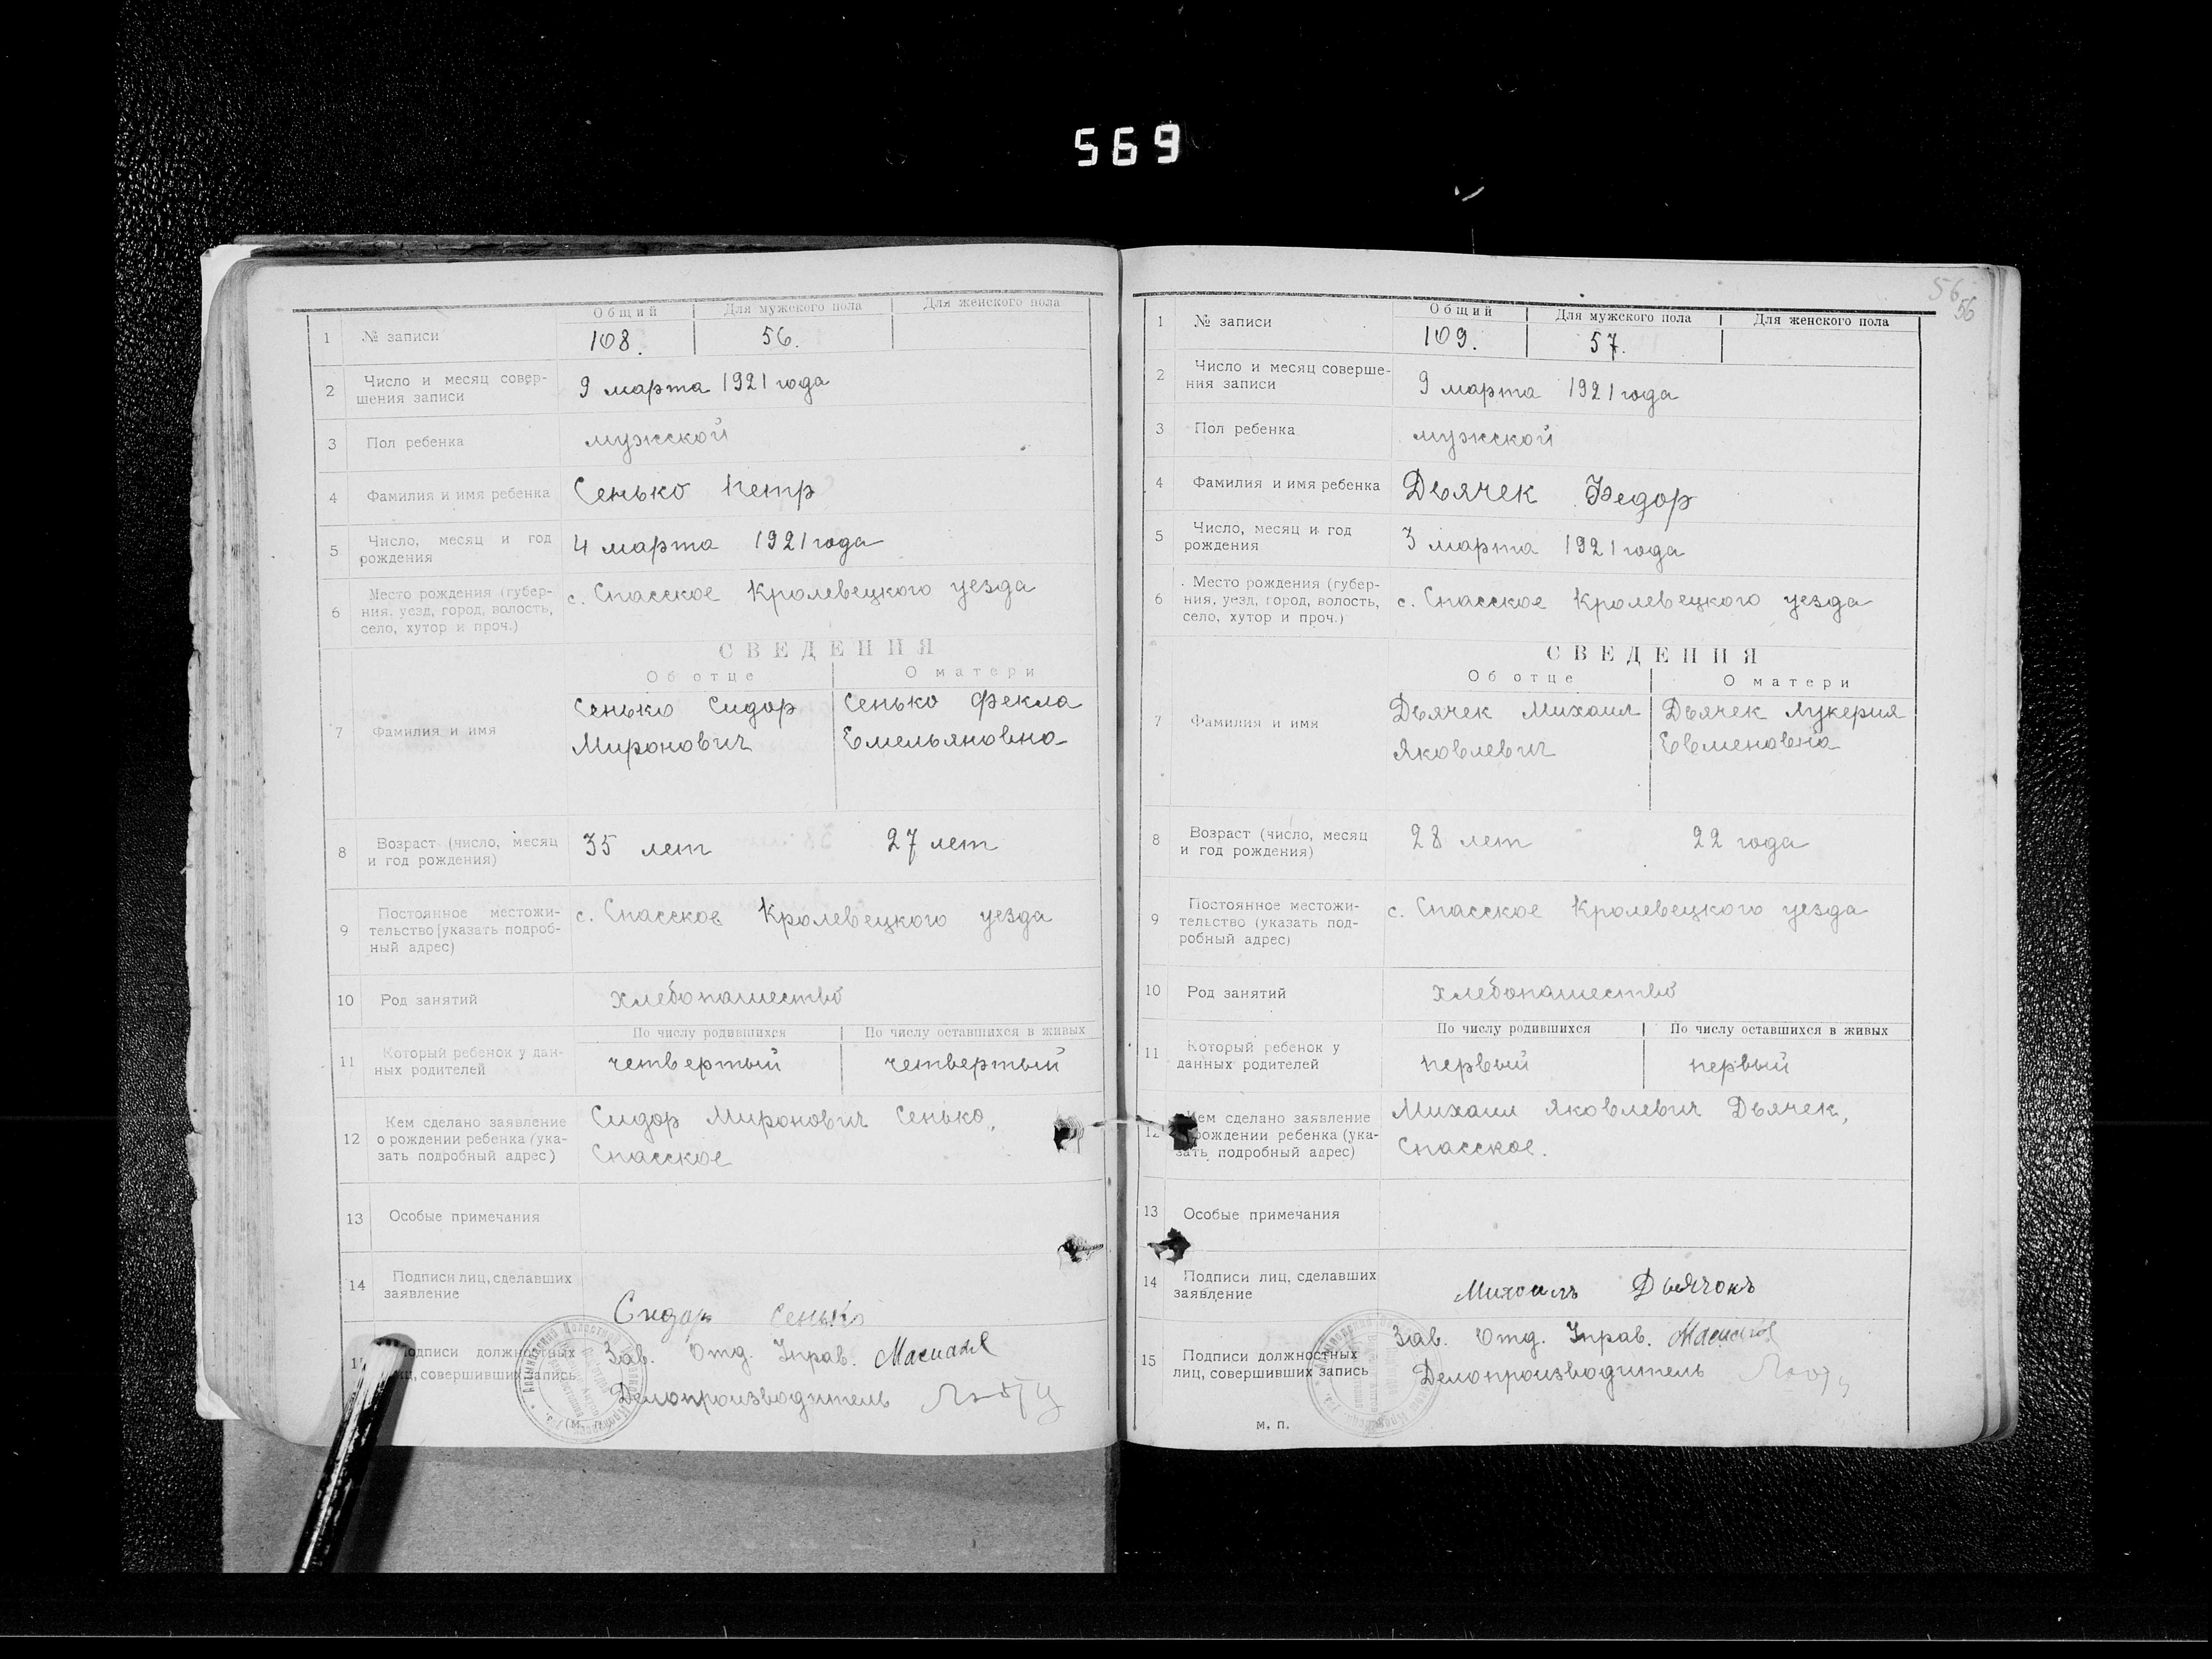 569
Общий Для мужского пола Для женского пола
1 № записи 108. 56.
2 Число и месяц совер-
шения записи 9 марта 1921 года
3 Пол ребенка мужской
4 Фамилия и имя ребенка Сенько Петр
5 Число, месяц и год
рождения 4 марта 1921 года
6 Место рождения (губер-
ния, уезд, город, волость,
село, хутор и проч.) с. Спасское Кролевецкого уезда
СВЕДЕНИЯ
Об отце О матери
7 Фамилия и имя Сенько Сидор Сенько Фекла
Миронович Емельяновна
8 Возраст (число, месяц
и год рождения) 35 лет 27 лет
9 Постоянное местожи-
тельство [указать подроб-
ный адрес) с. Спасское Кролевецкого уезда
10 Род занятий хлебопашество
По числу родившихся По числу оставшихся в живых
11 Который ребенок у дан-
ных родителей четвертый четвертый
12 Кем сделано заявление
о рождении ребенка (ука-
зать подробный адрес) Сидор Миронович Сенько,
Спасское
13 Особые примечания
14 Подписи лиц, сделавших
заявление Сидор Сенько
15 Подписи должностных
лиц, совершивших запись Зав. Отд. Управ.
Делопроизводитель
(м. п.)
56
56
Общий Для мужского пола Для женского пола
1 № записи 109. 57.
2 Число и месяц соверше-
ния записи 9 марта 1921 года
3 Пол ребенка мужской
4 Фамилия и имя ребенка Дьячек Федор
5 Число, месяц и год
рождения 3 марта 1921 года
6 Место рождения (губер-
ния, уезд, город, волость,
село, хутор и проч.) с. Спасское Кролевецкого уезда
СВЕДЕНИЯ
Об отце О матери
7 Фамилия и имя Дьячек Михаил Дьячек Лукерия
Яковлевич Евменовна
8 Возраст (число, месяц
и год рождения) 28 лет 22 года
9 Постоянное местожи-
тельство (указать под-
робный адрес) с. Спасское Кролевецкого уезда
10 Род занятий хлебопашество
По числу родившихся По числу оставшихся в живых
11 Который ребенок у
данных родителей первый первый
12 Кем сделано заявление
о рождении ребенка (ука-
зать подробный адрес) Михаил Яковлевич Дьячек,
Спасское.
13 Особые примечания
14 Подписи лиц, сделавших
заявление Михаилъ Дьячокъ
15 Подписи должностных
лиц, совершивших запись Зав. Отд. Управ.
Делопроизводитель
м. п.